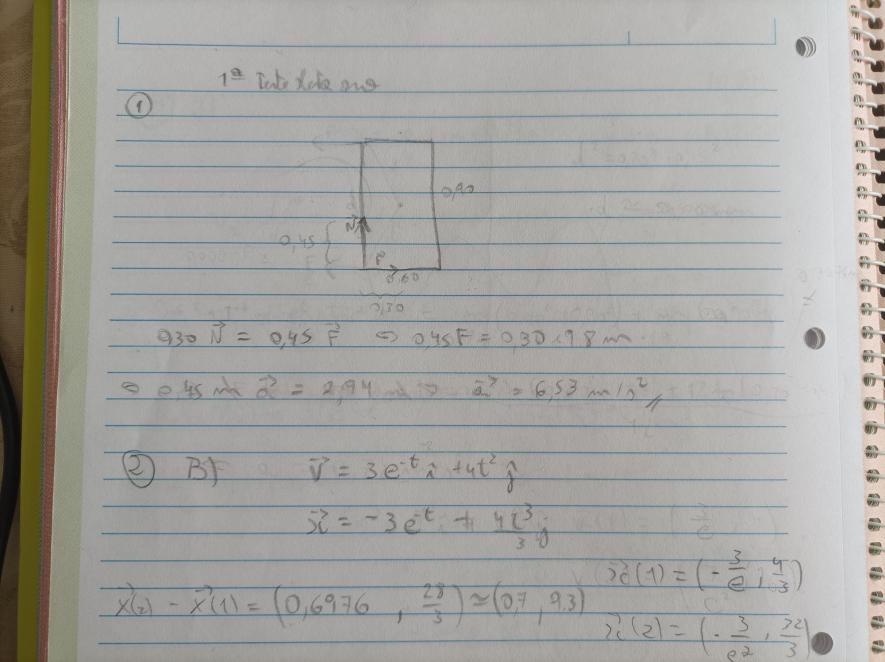 1ª
①
0,90
0,45
N⃗
F
0,60
0,30
0,30 N⃗ = 0,45 F⃗ ⇔ 0,45F = 0,30 · 9,8 m
⇔ 0,45 m a⃗ = 2,94 m ⇔ a⃗ = 6,53 m/s² //
② B) v⃗ = 3e^-t î + 4t² ĵ
x⃗ = -3e^-t + 4t³/3 j
x⃗(1) = (-3/e, 4/3)
x⃗(2) - x⃗(1) = (0,6976 , 28/3) ≃ (0,7 , 9,3)
x⃗(2) = (-3/e², 32/3)